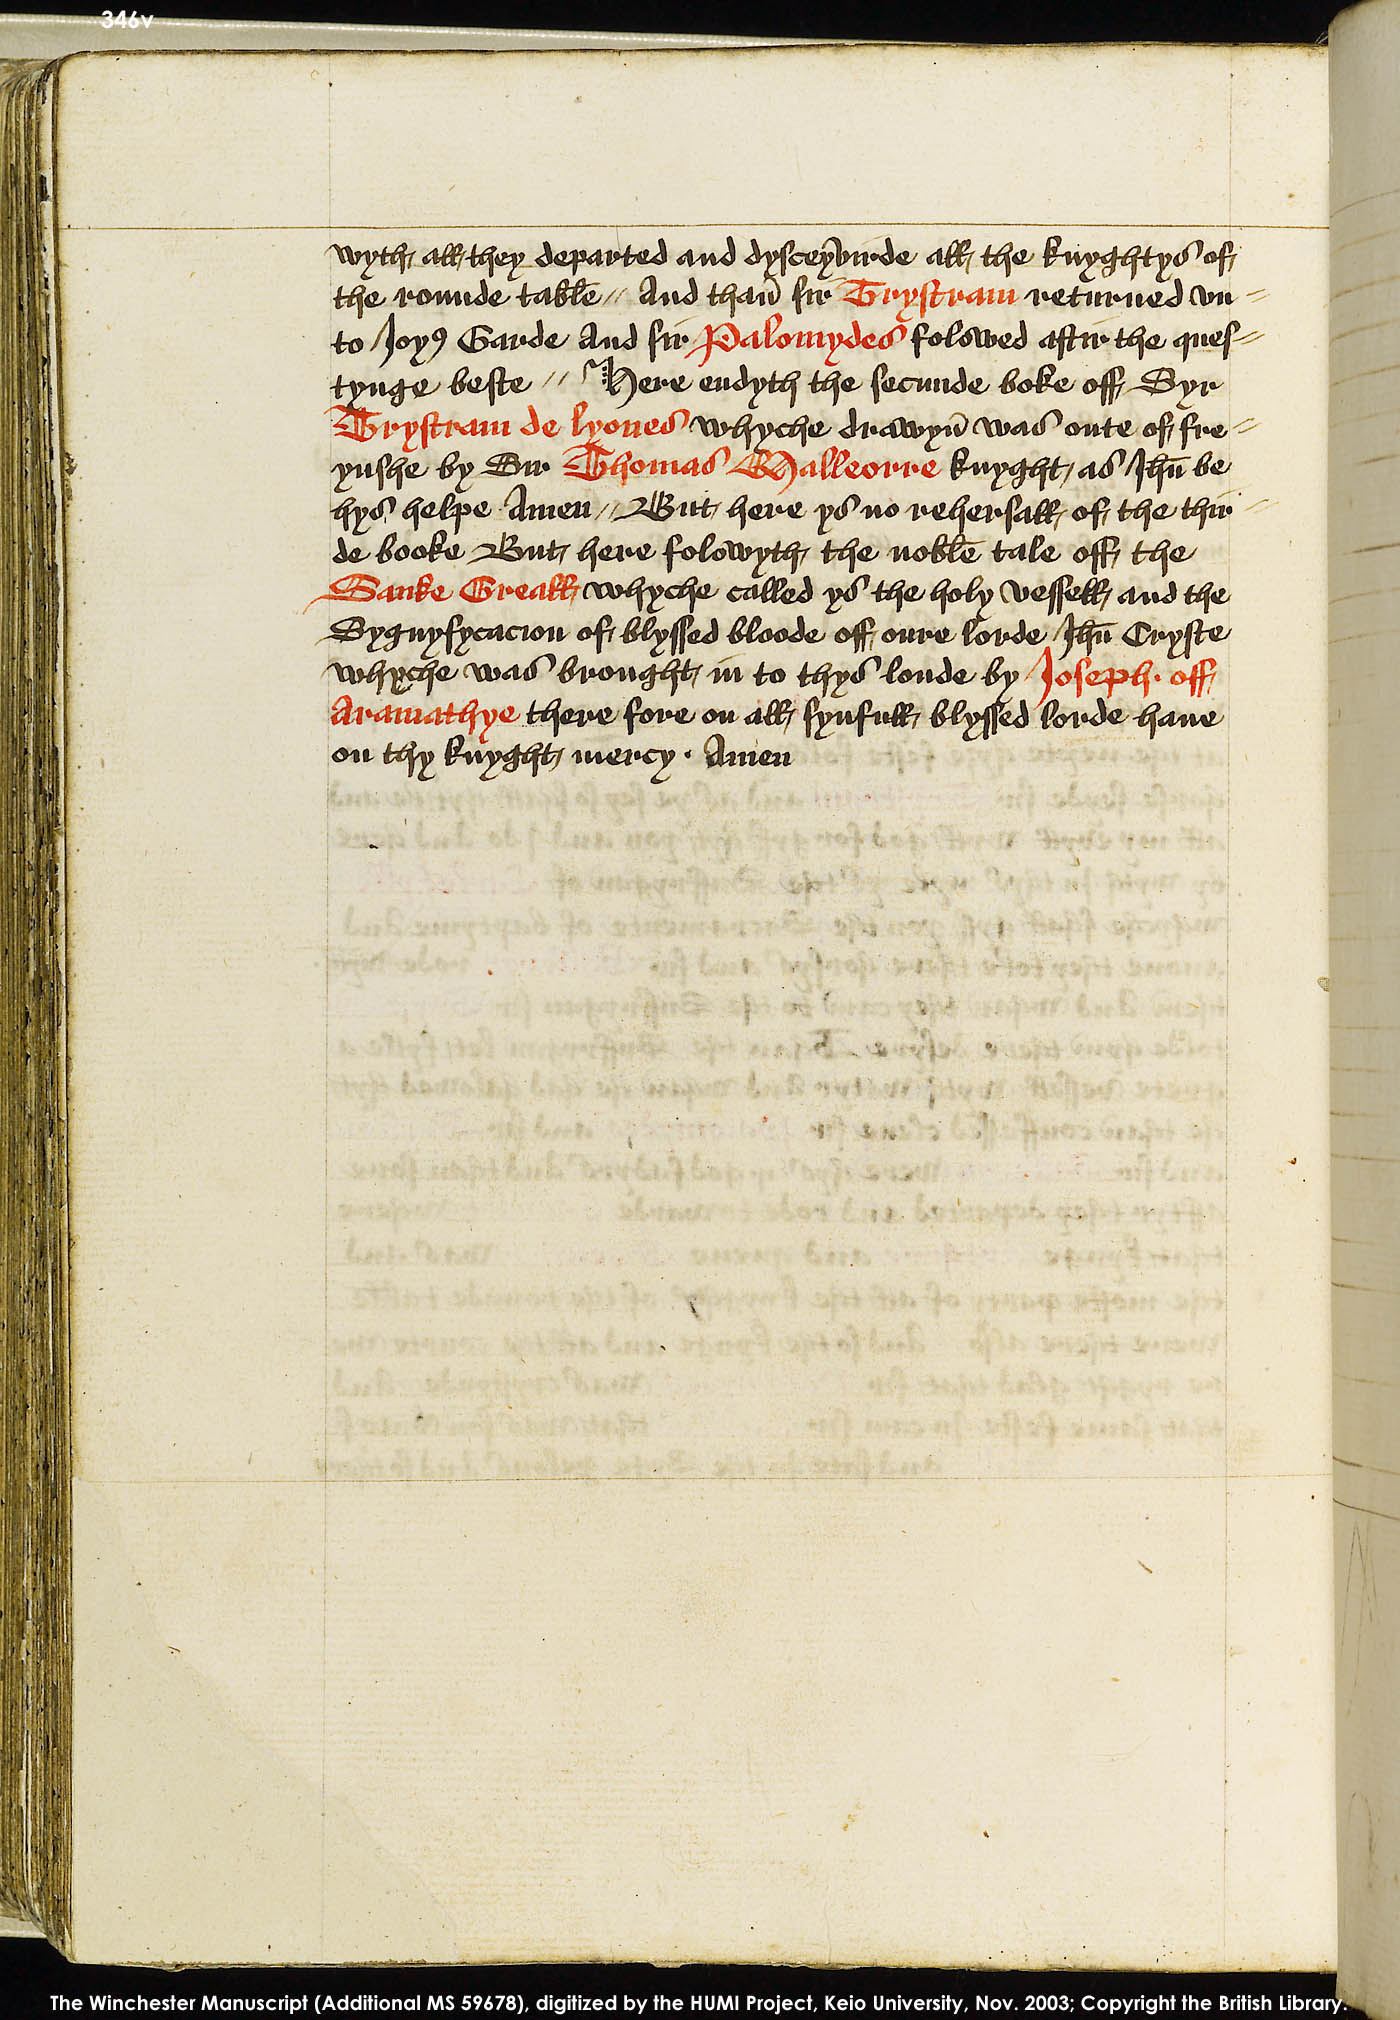 346v
wyth all they departed and dysceyvirde all the knyghtys of
the rounde table // And than̄ sir Trystram returned vn=
to Joyꝰ Garde And sir Palomydes folowed aftir the ques=
tynge beste // Here endyth the secunde boke off Syr
Trystram de lyones whyche drawyn̄ was oute of fre=
ynshe by Sir Thomas Malleorre knyght as Ihū be
hys helpe Amen // But here ys no rehersall of the thir=
de booke But here folowyth the noble tale off the
Sanke Greall whyche called ys the holy vessell and the
Sygnyfycacion of blyssed bloode off oure lorde Ihū Cryste
whyche was brought in to thys londe by Joseph · off
Aramathye there fore on all synfull blyssed lorde haue
on thy knyght mercy · Amen
The Winchester Manuscript (Additional MS 59678), digitized by the HUMI Project, Keio University, Nov. 2003; Copyright the British Library.